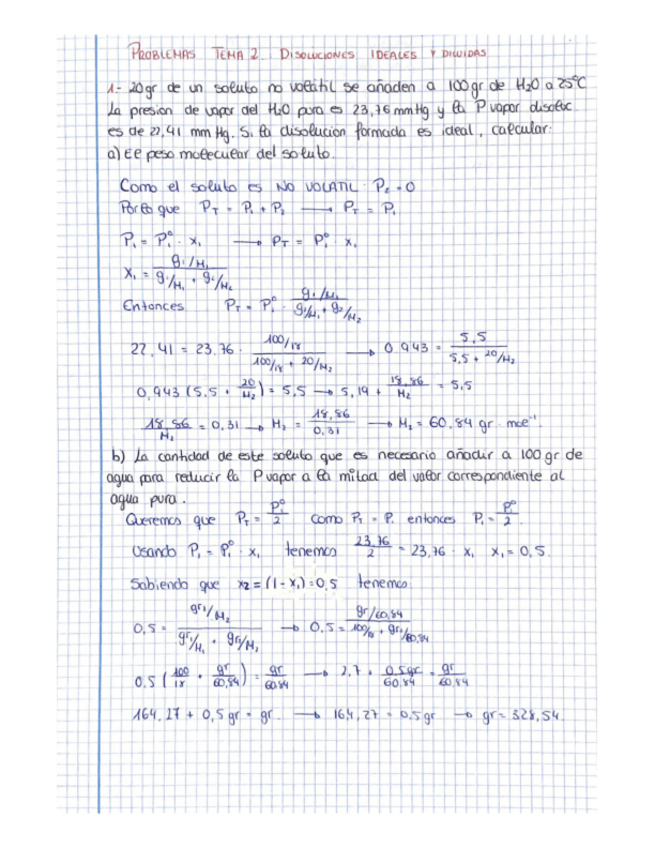 PROBLEMAS TEMA 2. DISOLUCIONES IDEALES Y DILUIDAS
1- 20gr de un soluto no volátil se añaden a 100gr de H2O a 25ºC
La presion de vapor del H2O pura es 23,76 mmHg y la P vapor disoluc.
es de 22,41 mm Hg. Si la disolucion formada es ideal, calcular:
a) EL peso molecular del soluto.
Como el soluto es NO VOLATIL P2 = 0
Por lo que PT = P1 + P2 → PT = P1
P1 = P1º · x1 → PT = P1º · x1
x1 = (g1/M1) / (g1/M1 + g2/M2)
Entonces PT = P1º · (g1/M1) / (g1/M1 + g2/M2)
22,41 = 23,76 · (100/18) / (100/18 + 20/M2) → 0,943 = 5,5 / (5,5 + 20/M2)
0,943 (5,5 + 20/M2) = 5,5 → 5,19 + 18,86/M2 = 5,5
18,86/M2 = 0,31 → M2 = 18,86/0,31 → M2 = 60,84 gr · mol⁻¹.
b) La cantidad de este soluto que es necesario añadir a 100 gr de
agua para reducir la P vapor a la mitad del valor correspondiente al
agua pura.
Queremos que PT = P1º/2 como PT = P1 entonces P1 = P1º/2.
Usando P1 = P1º · x1 tenemos 23,76/2 = 23,76 · x1 x1 = 0,5.
Sabiendo que x2 = (1 - x1) = 0,5 tenemos
0,5 = (gr/M2) / (gr/M1 + gr/M2) → 0,5 = (gr/60,84) / (100/18 + gr/60,84)
0,5 (100/18 + gr/60,84) = gr/60,84 → 2,7 + 0,5gr/60,84 = gr/60,84
164,27 + 0,5 gr = gr. → 164,27 = 0,5gr → gr = 328,54.